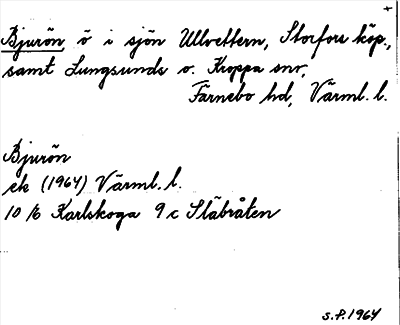 Bjurön, ö i sjön Ullvettern, Storfors köp.,
samt Lungsunds o. Kroppa snr,
Färnebo hd, Värml. l.
Bjurön
ek (1964) Värml. l.
10 E Karlskoga 9 c Släbråten
S.P. 1964